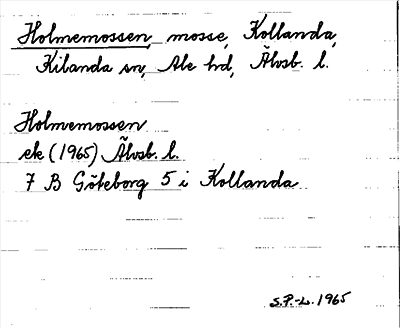 Holmemossen, mosse, Kollanda,
Kilanda sn, Ale hd, Älvsb. l.
Holmemossen
ek (1965) Älvsb. l.
7 B Göteborg 5 i Kollanda
S.P.-L. 1965